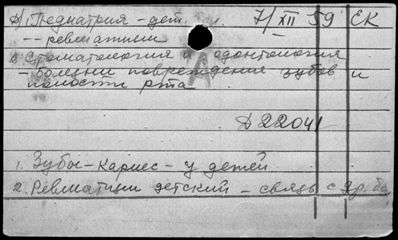 А) Педиатрия - дет. 7/XII 59 ЕК
-- ревматизм
Б) Стоматология и одонтология
- болезни повреждения зубов и
полости рта
Д22041
1. Зубы - Кариес - у детей
2. Ревматизм детский - связь с др. бо